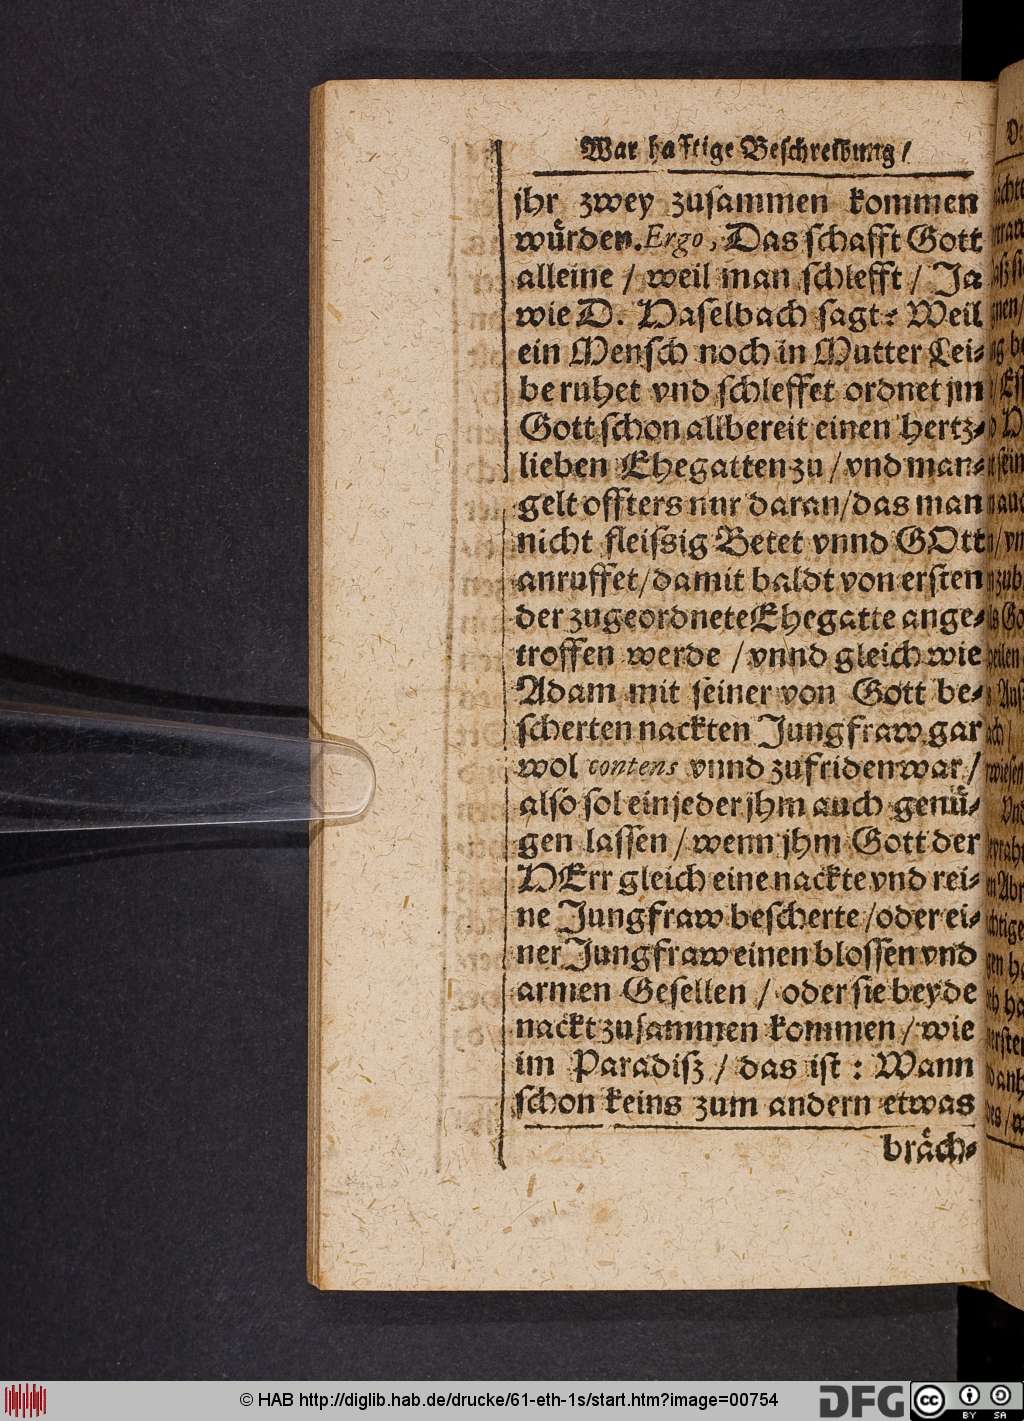 Warhafftige Beschreibung /
jhr zwey zusammen kommen
würden. Ergo, Das schafft Gott
alleine / weil man schlefft / Ja
wie D. Haselbach sagt: Weil
ein Mensch noch in Mutter Lei-
be ruhet vnd schleffet ordnet jm
Gott schon allbereit einen hertz-
lieben Ehegatten zu / vnd man-
gelt offters nur daran / das man
nicht fleissig Betet vnnd GOtt
anruffet / damit baldt von ersten
der zugeordnete Ehegatte ange-
troffen werde / vnnd gleich wie
Adam mit seiner von Gott be-
scherten nackten Jungfraw gar
wol contens vnnd zufriden war /
also sol ein jeder jhm auch genü-
gen lassen / wenn jhm Gott der
HErr gleich eine nackte vnd rei-
ne Jungfraw bescherte / oder ei-
ner Jungfraw einen blossen vnd
armen Gesellen / oder sie beyde
nackt zusammen kommen / wie
im Paradiß / das ist : Wann
schon keins zum andern etwas
bräch-
© HAB http://diglib.hab.de/drucke/61-eth-1s/start.htm?image=00754
DFG
CC BY SA